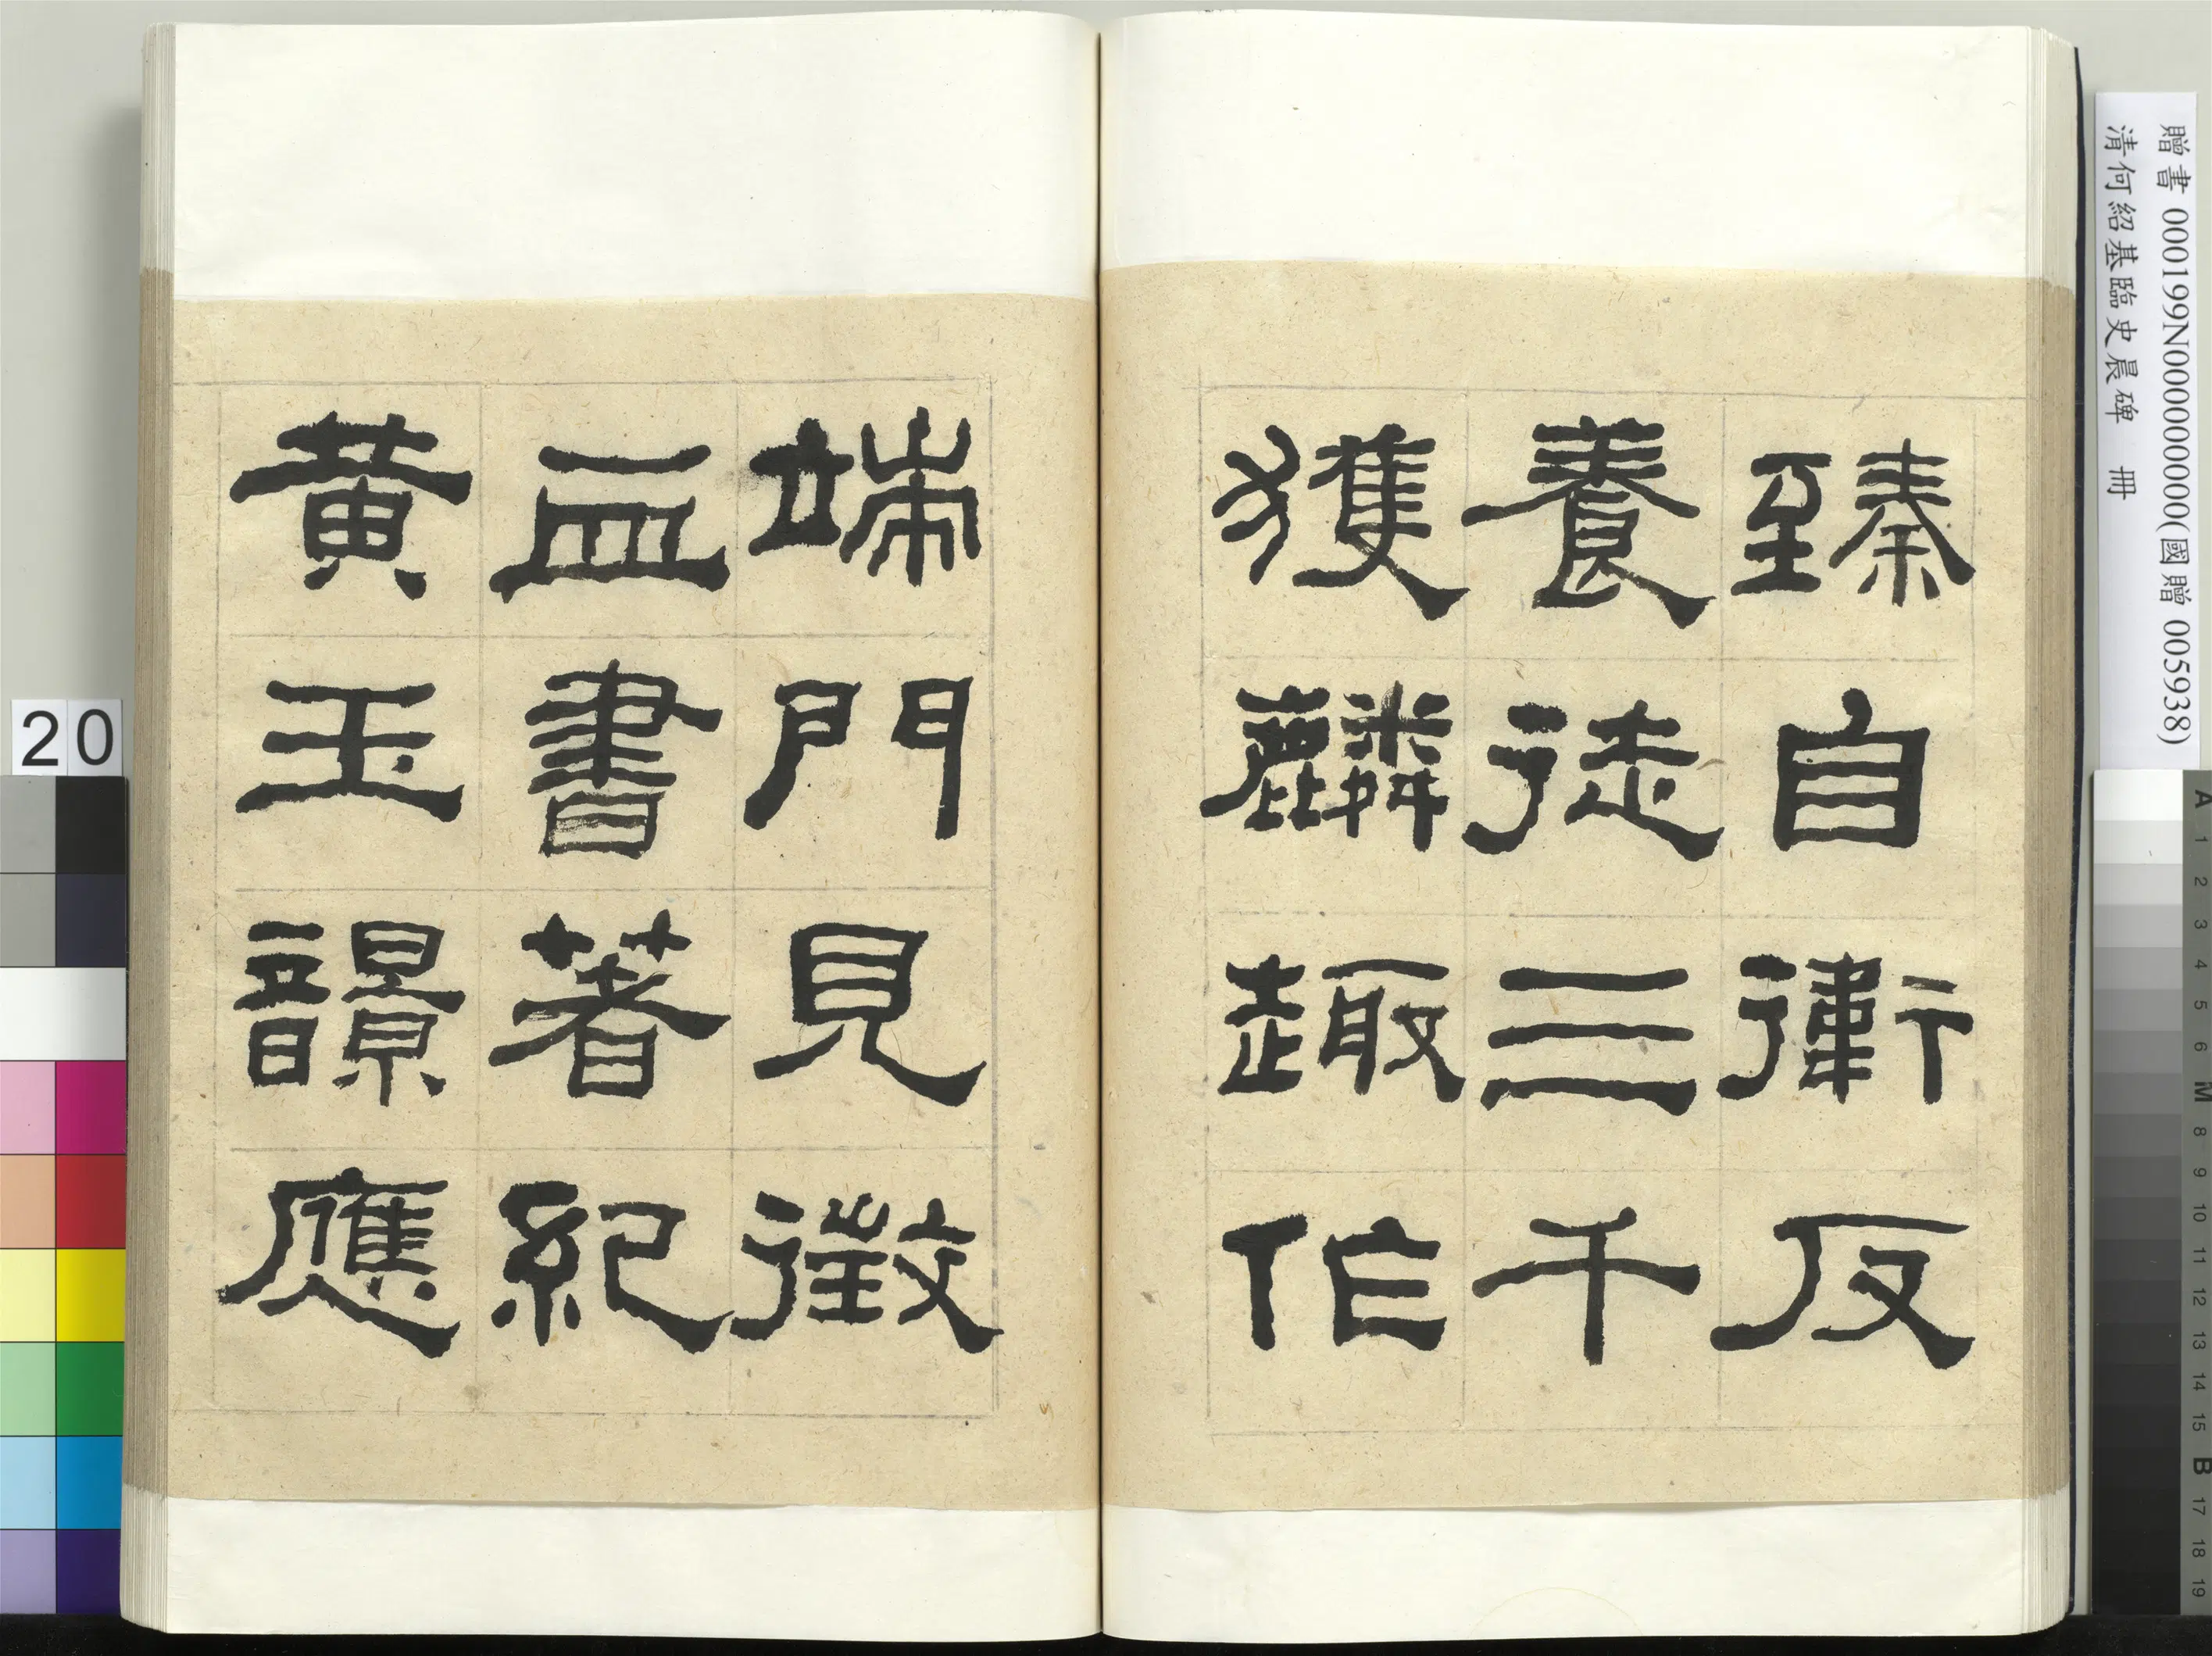 臻自衛反
養徒三千
獲麟趣作
端門見徵
血書著紀
黃玉響應
贈書 000199N000000000(國贈 005938)
清何紹基臨史晨碑 冊
20
A 1 2 3 4 5 6 M 8 9 10 11 12 13 14 15 B 17 18 19